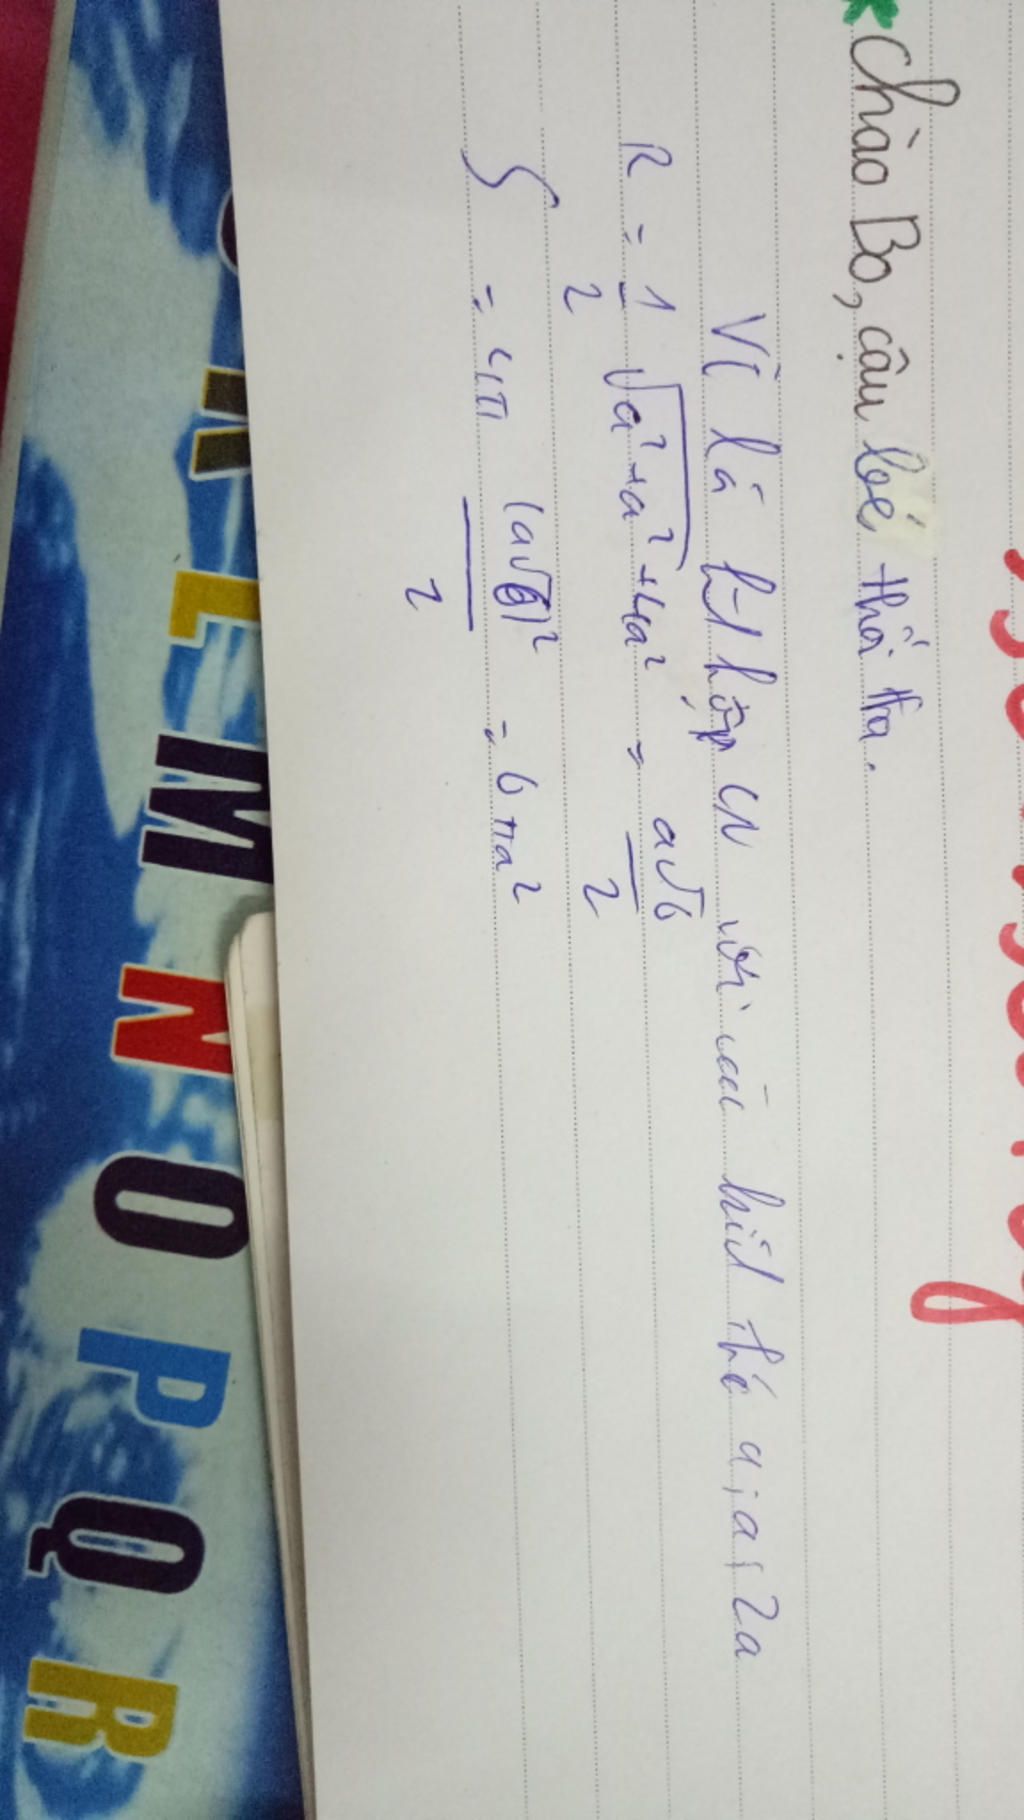 Chào Bo, cậu bé thối tha.
Vì là hì hộp CN với các kích thước a; a; 2a
R = 1/2 √a²+a²+4a² = a√6/2
S = 4π (a√6)²/2 = 6πa²
K L M N O P Q R